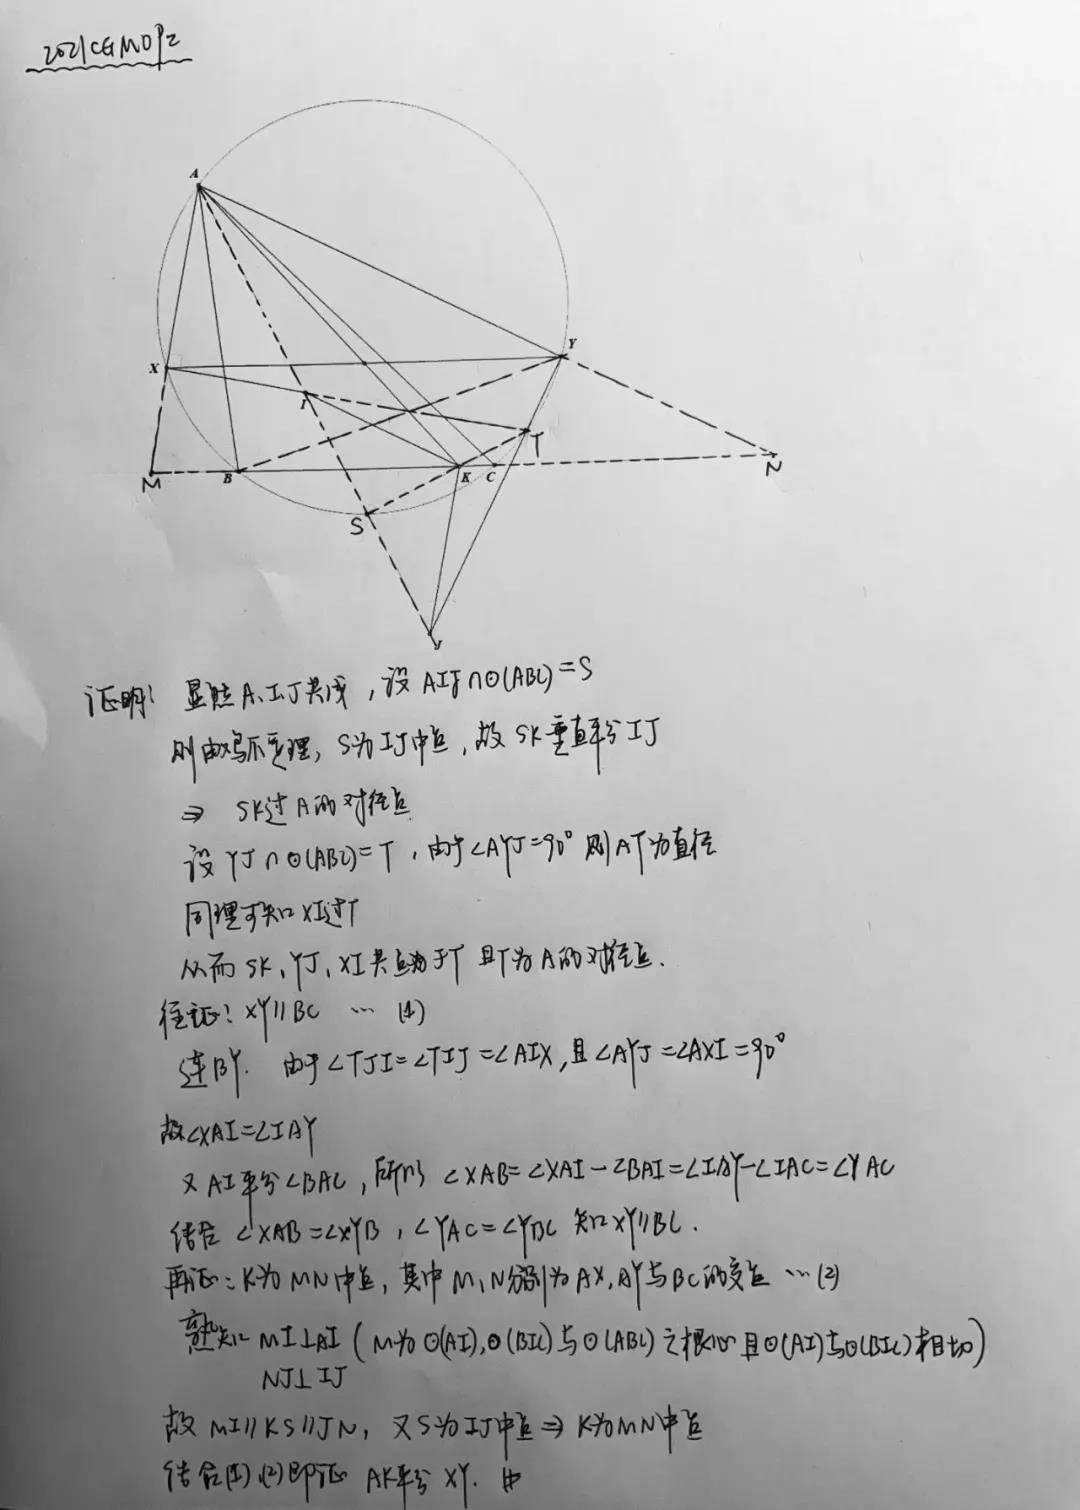 2021CGMOP2
A
X
Y
I
T
M
B
K
C
N
S
J
证明: 显然A、I、J共线,设AIJ∩⊙(ABC)=S
则由鸡爪定理,S为IJ中点,故SK垂直平分IJ
⇒ SK过A的对径点
设YJ∩⊙(ABC)=T,由于∠AYJ=90°则AT为直径
同理可知XI过T
从而SK、YJ、XI共点于T且T为A的对径点.
往证: XY∥BC … (1)
连BY. 由于∠TJI=∠TIJ=∠AIX,且∠AYJ=∠AXI=90°
故∠XAI=∠IAY
又AI平分∠BAC,所以∠XAB=∠XAI-∠BAI=∠IAY-∠IAC=∠YAC
结合∠XAB=∠XYB,∠YAC=∠YBC知XY∥BC.
再证: K为MN中点,其中M,N分别为AX,AY与BC的交点 …(2)
熟知MI⊥AI(M为⊙(AI),⊙(BIC)与⊙(ABC)之根心且⊙(AI)与⊙(BIC)相切)
NJ⊥IJ
故MI∥KS∥JN,又S为IJ中点⇒K为MN中点
结合(1)、(2)即证AK平分XY. #